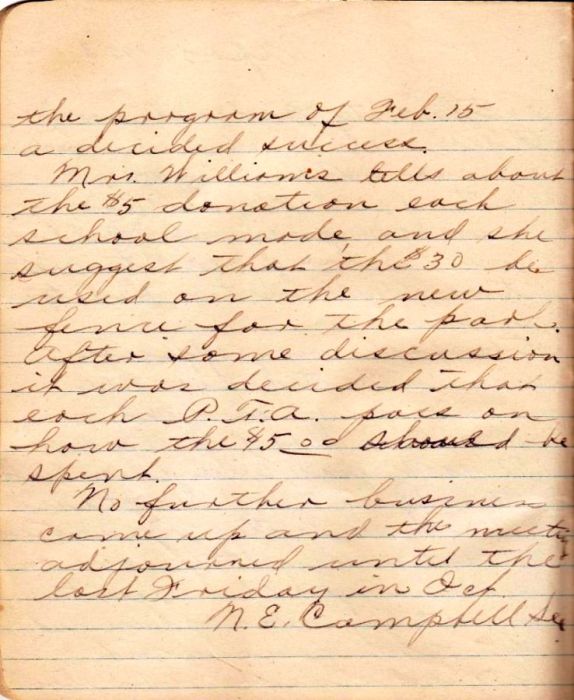 the program of Feb. 15
a decided success.
Mrs. Williams tells about
the $5 donation each
school made, and she
suggest that the $30 be
used on the new
fence for the park.
After some discussion
it was decided that
each P.T.A. pass on
how the $5.00 should be
spent.
No further business
came up and the meeting
adjourned until the
last Friday in Oct.
N.E. Campbell Sec